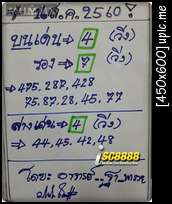 ส.ค. 2560
บนเด่น ⇒ 4 (วิ่ง)
รอง ⇒ 7 (วิ่ง)
⇒ 475. 287. 428
75. 87. 28. 45. 77
ล่างเด่น ⇒ 4 (วิ่ง)
⇒ 44. 45. 42. 48
iSC8888
โดย: อาจารย์
[450x600] upic.me